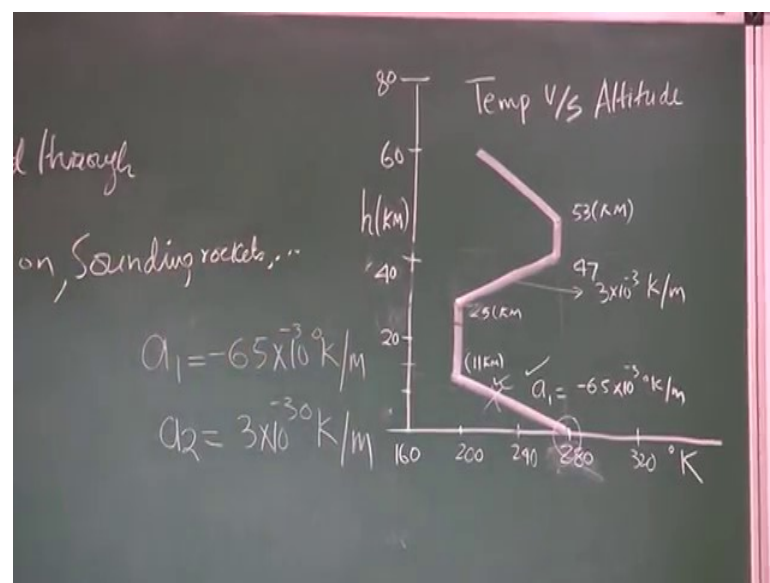 d through
on, Sounding rockets,...
a₁ = -65x10⁻³ °K/m
a₂ = 3x10⁻³ °K/m
Temp V/s Altitude
80
60
h(KM)
40
20
53(KM)
47
3x10⁻³ K/m
25(KM
(11KM)
a₁ = -65x10⁻³ °K/m
160 200 240 280 320 °K